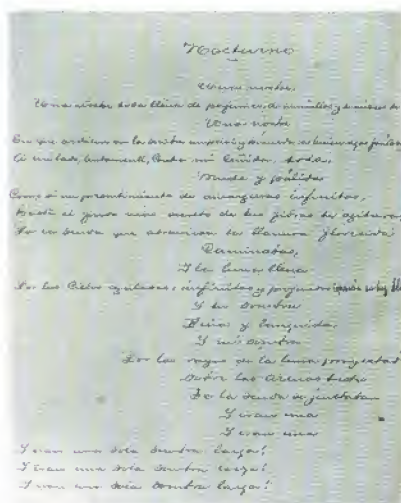 Nocturno
Una noche,
Una noche toda llena de perfumes, de murmullos y de músicas de
Una noche
En que ardían en la sombra nupcial y húmeda las luciérnagas fantás
A mi lado, lentamente, contra mí ceñida, toda,
Muda y pálida
Como si un presentimiento de amarguras infinitas,
Hasta el fondo más secreto de tus fibras te agitara,
Por la senda que atraviesa la llanura florecida
Caminabas,
Y la luna llena
Por los cielos azulosos, infinitos y profundos esparcía su luz bl
Y tu sombra
Fina y lánguida,
Y mi sombra
Por los rayos de la luna proyectad
Sobre las arenas
De la senda se juntaban
Y eran una
Y eran una
Y eran una sola sombra larga!
Y eran una sola sombra larga!
Y eran una sola sombra larga!